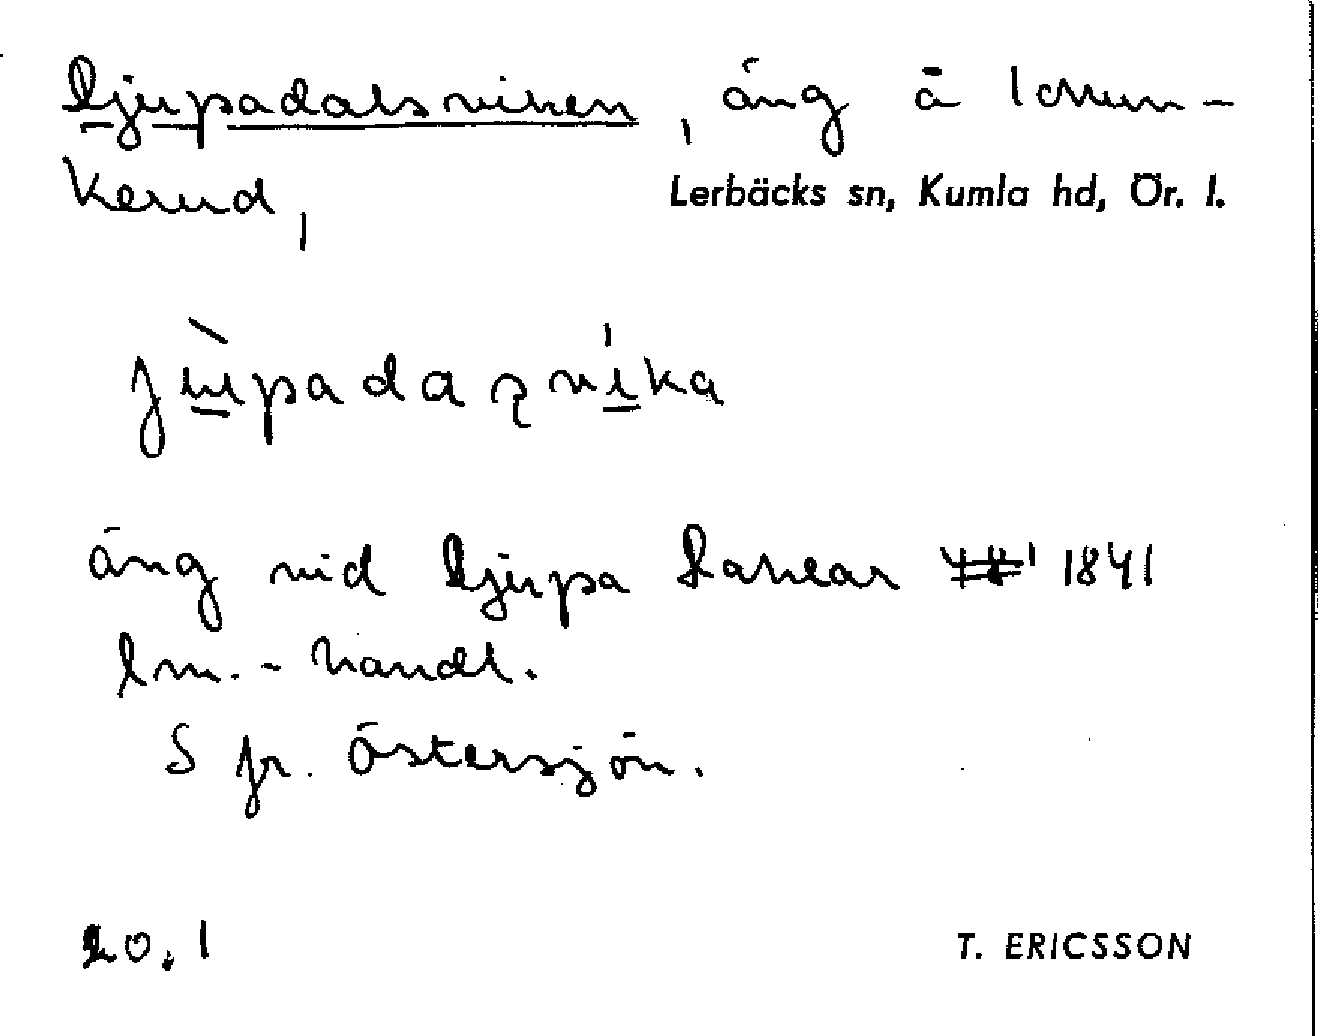 Djupadalsviken, äng å Ickun-
kerud,
Lerbäcks sn, Kumla hd, Ör. l.
jùpadaʒvíka
äng vid Djupa 1841
lm.-handl.
S fr. Östersjön.
20.1
T. ERICSSON